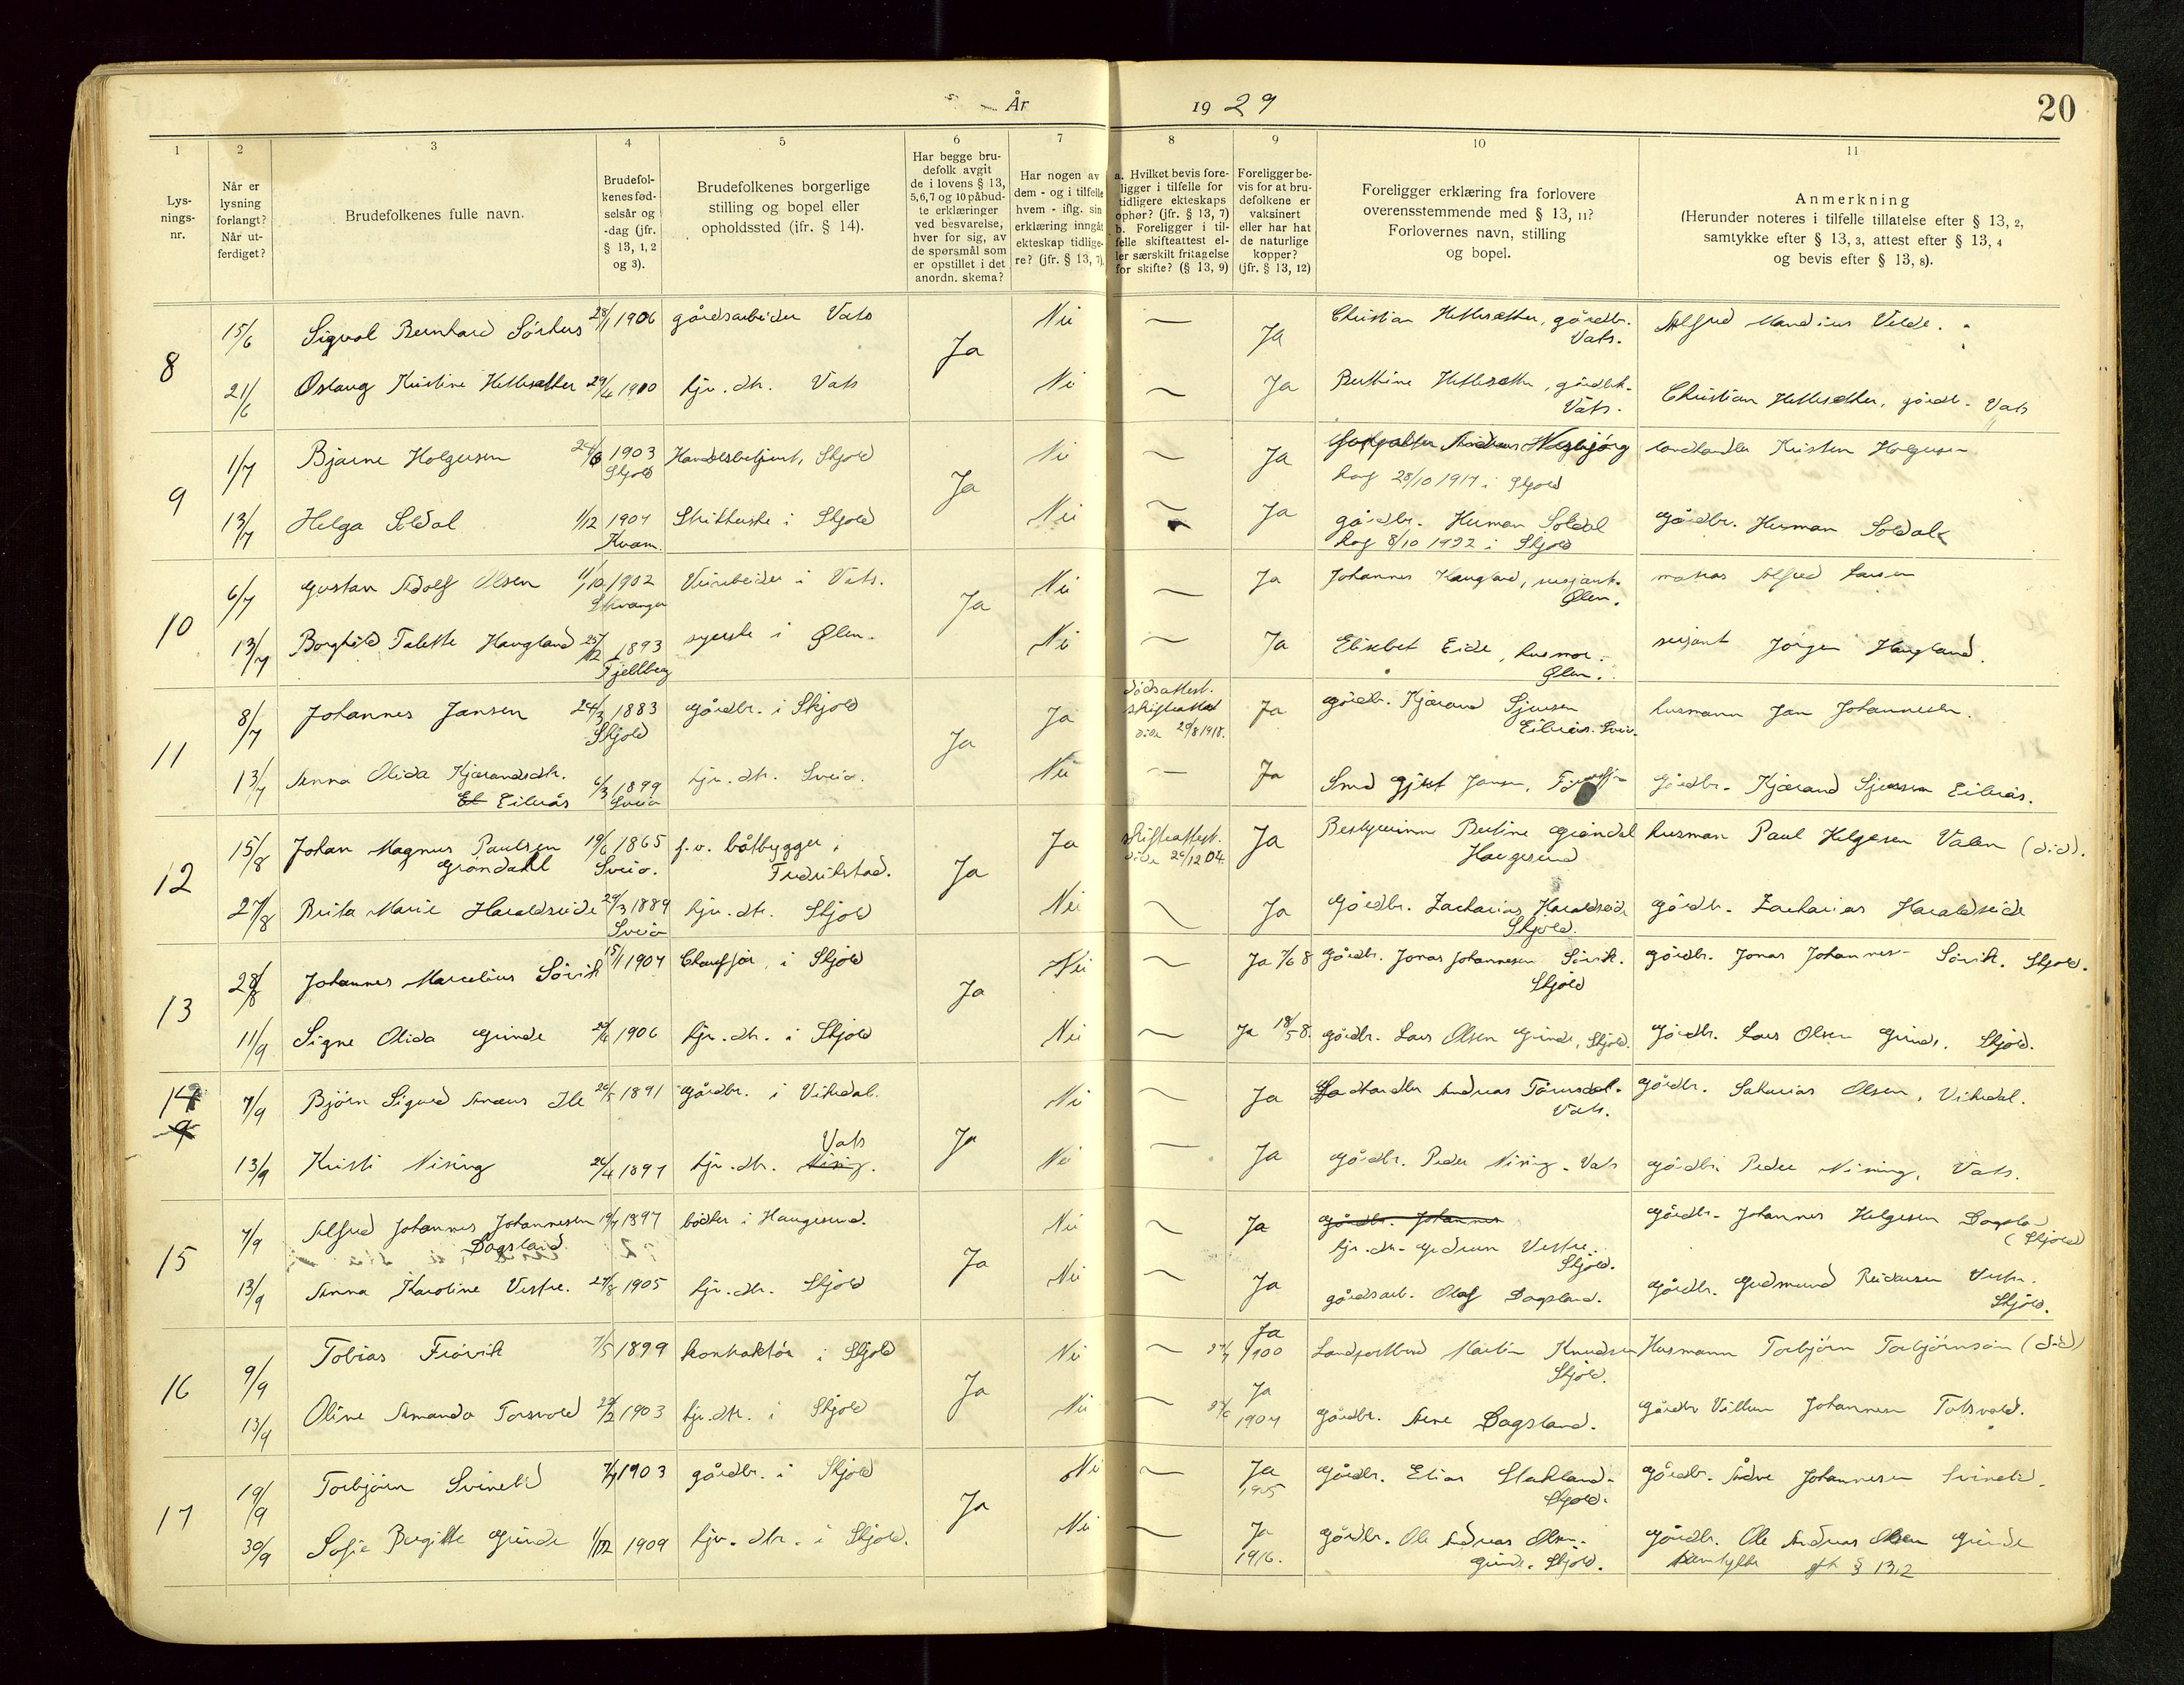 År 1929
20
1 2 3 4 5 6 7 8 9 10 11
Lys-
nings-
nr.
Når er
lysning
forlangt?
Når ut-
ferdiget?
Brudefolkenes fulle navn.
Brudefol-
kenes fød-
selsår og
-dag (jfr.
§ 13, 1, 2
og 3).
Brudefolkenes borgerlige
stilling og bopel eller
opholdssted (jfr. § 14).
Har begge bru-
defolk avgit
de i lovens § 13,
5, 6, 7 og 10 påbud-
te erklæringer
ved besvarelse,
hver for sig, av
de spørsmål som
er opstillet i det
anordn. skema?
Har nogen av
dem - og i tilfelle
hvem - iflg. sin
erklæring inngåt
ekteskap tidlige-
re? (jfr. § 13, 7).
a. Hvilket bevis fore-
ligger i tilfelle for
tidligere ekteskaps
ophør? (jfr. § 13, 7)
b. Foreligger i til-
felle skifteattest el-
ler særskilt fritagelse
for skifte? (§ 13, 9)
Foreligger be-
vis for at bru-
defolkene er
vaksinert
eller har hat
de naturlige
kopper?
(jfr. § 13, 12)
Foreligger erklæring fra forlovere
overensstemmende med § 13, 11?
Forlovernes navn, stilling
og bopel.
Anmerkning
(Herunder noteres i tilfelle tillatelse efter § 13, 2,
samtykke efter § 13, 3, attest efter § 13, 4
og bevis efter § 13, 8).
8
15/6 Sigval Bernhard Sörhus 28/1 1906 gårdsarbeider Vats Ja Nei — Ja Christian Hettesætter, gårdbr. Vats. Alfred Mandius Velde.
21/6 Oslaug Kristine Hettesætter 29/4 1910 hjv. dtr. Vats Nei — Ja Berthine Hettesætter, Vats. Christian Hettesætter, gårdbr. Vats
9
1/7 Bjarne Holgersen 1903 Skjold Handelsbetjent, Skjold Ja Nei — Ja Andreas Nesbjörg landhandler Kristen Holgersen
kop 28/10 1917 i Skjold
13/7 Helga Soldal 1/12 1907 Kvam. Skjold Nei — Ja gårdbr. Herman Soldal gårdbr. Herman Soldal
kop 8/10 1922 i Skjold
10
6/7 Gustav Adolf Olsen 11/10 1902 Stavanger Veiarbeider i Vats. Ja Nei — Ja Johannes Haugland, Ølen. matros Alfred Larsen
13/7 Borghild Talette Haugland 1893 Fjellberg syerske i Ølen. Nei — Ja Elisebet Eide, husmor. Ølen. Jörgen Haugland.
11
8/7 Johannes Jansen 24/3 1883 Skjold gårdbr. i Skjold Ja Ja dødsattest. skifteattest 29/8 1918. Ja gårdbr. Kjærand Sjursen Eilerås. Sveio. husmann Jan Johannesen.
13/7 Anna Olida Kjærandsdtr. Eilerås 6/3 1899 Sveio hjv. dtr. Sveio. Nei — Ja Smed Gjert Jansen, gårdbr. Kjærand Sjursen Eilerås.
12
15/8 Johan Magnus Paulsen Gröndahl 19/6 1865 Sveio. f.v. båtbygger i Fredrikstad. Ja Ja skifteattest. 20/12 04. Ja Bestyrerinne Bertine Gröndal Haugesund husman Paul Helgesen Valen (död).
27/8 Brita Marie Haraldseide 29/3 1889 Sveio hjv. dtr. Skjold Nei — Ja Gårdbr. Zacharias Haraldseide Skjold. gårdbr. Zacharias Haraldseide
13
28/8 Johannes Marcelius Sörvik 15/1 1904 Chauffør, i Skjold Ja Nei — Ja 7/6 8 gårdbr. Jonas Johannesen Sörvik. Skjold gårdbr. Jonas Johannes- Sörvik. Skjold.
11/9 Signe Olida Grinde 1906 hjv. dtr. i Skjold Nei — Ja 18/5 8. gårdbr. Lars Olsen Grinde, Skjold. gårdbr. Lars Olsen Grinde. Skjold.
14
7/9 Björn Sigurd Ile 26/5 1891 gårdbr. i Vikedal. Ja Nei — Ja Landhandler Andreas Törresdal. Vats. gårdbr. Sakarias Olsen, Vikedal.
13/9 Kristi Nising 26/4 1897 hjv. dtr. Vats Nising. Nei — Ja gårdbr. Peder Nising. Vats gårdbr. Peder Nising, Vats.
15
7/9 Alfred Johannes Johannesen Dagsland. 19/7 1897 bödker i Haugesund. Ja Nei — Ja Gårdbr. Johannes gårdbr. Johannes Helgesen Dagsla- (Skjold)
hjv. dtr. Vestre. Skjold.
13/9 Anna Karoline Vestre. 27/8 1905 hjv. dtr. Skjold Nei — Ja gårdsarb. Olaf Dagsland. gårdbr. Gudmund Reidarsen Vestre. Skjold.
16
9/9 Tobias Frövik 7/5 1899 kontraktör i Skjold Ja Nei — Ja 1900 Landpostbud Martin Knudsen Skjold. Husmann Torbjörn Torbjörnsen (död)
13/9 Oline Amanda Torsvold 1903 hjv. dtr. i Skjold Nei — Ja 1904 gårdbr. Arne Dagsland. gårdbr Villum Johannesen Totsvold.
17
19/9 Torbjörn Svinelid 1903 gårdbr. i Skjold Ja Nei — Ja 1905 gårdbr. Elias Slakland- Skjold. gårdbr. Ådne Johannesen Svinelid.
30/9 Sofie Bergitte Grinde 1/12 1909 hjv. dtr. i Skjold. Nei — Ja 1916. gårdbr. Ole Andreas Olsen. Grinde. Skjold. gårdbr. Ole Andreas Olsen Grinde
samtykke eft § 13,2